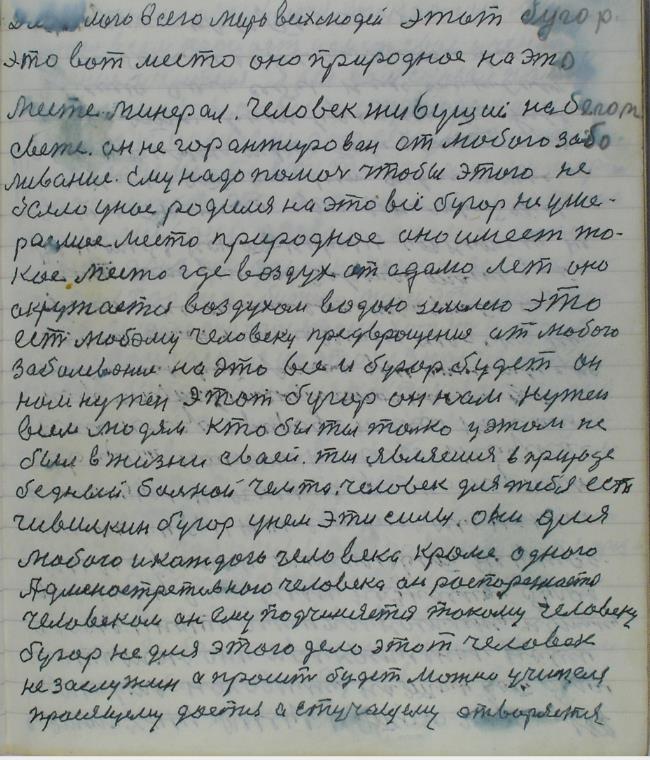 мого всего мира всих людей этот бугор.
это вот место оно природное на это
месте минерал. человек живущий на белом
свете. он не горантирован от любого забо
ливание. Ему надо помоч чтобы этого не
было унас родимя на это всё бугор не уме-
ра место природное оно имеет то-
кое место где воздух от адама лет оно
окружается воздухом водою землею это
ест любому человеку предврощение от любого
заболевание на это все и бугор будет он
нам нужен этот бугор он нам нужен
всем людям кто бы ты толко у этом не
был в жизни своей. ты являешся в природе
бедный. болной чемто. человек для тебя есть
чивилкин бугор унем эти силы. они для
любого и каждого человека кроме одного
Админостретивного человека он распоряжаетс
человеком он ему подчиняется такому человеку
бугор не для этого дело этот человек
не заслужин а просит будет можно учителя
просящему дается а стучащему отворяется